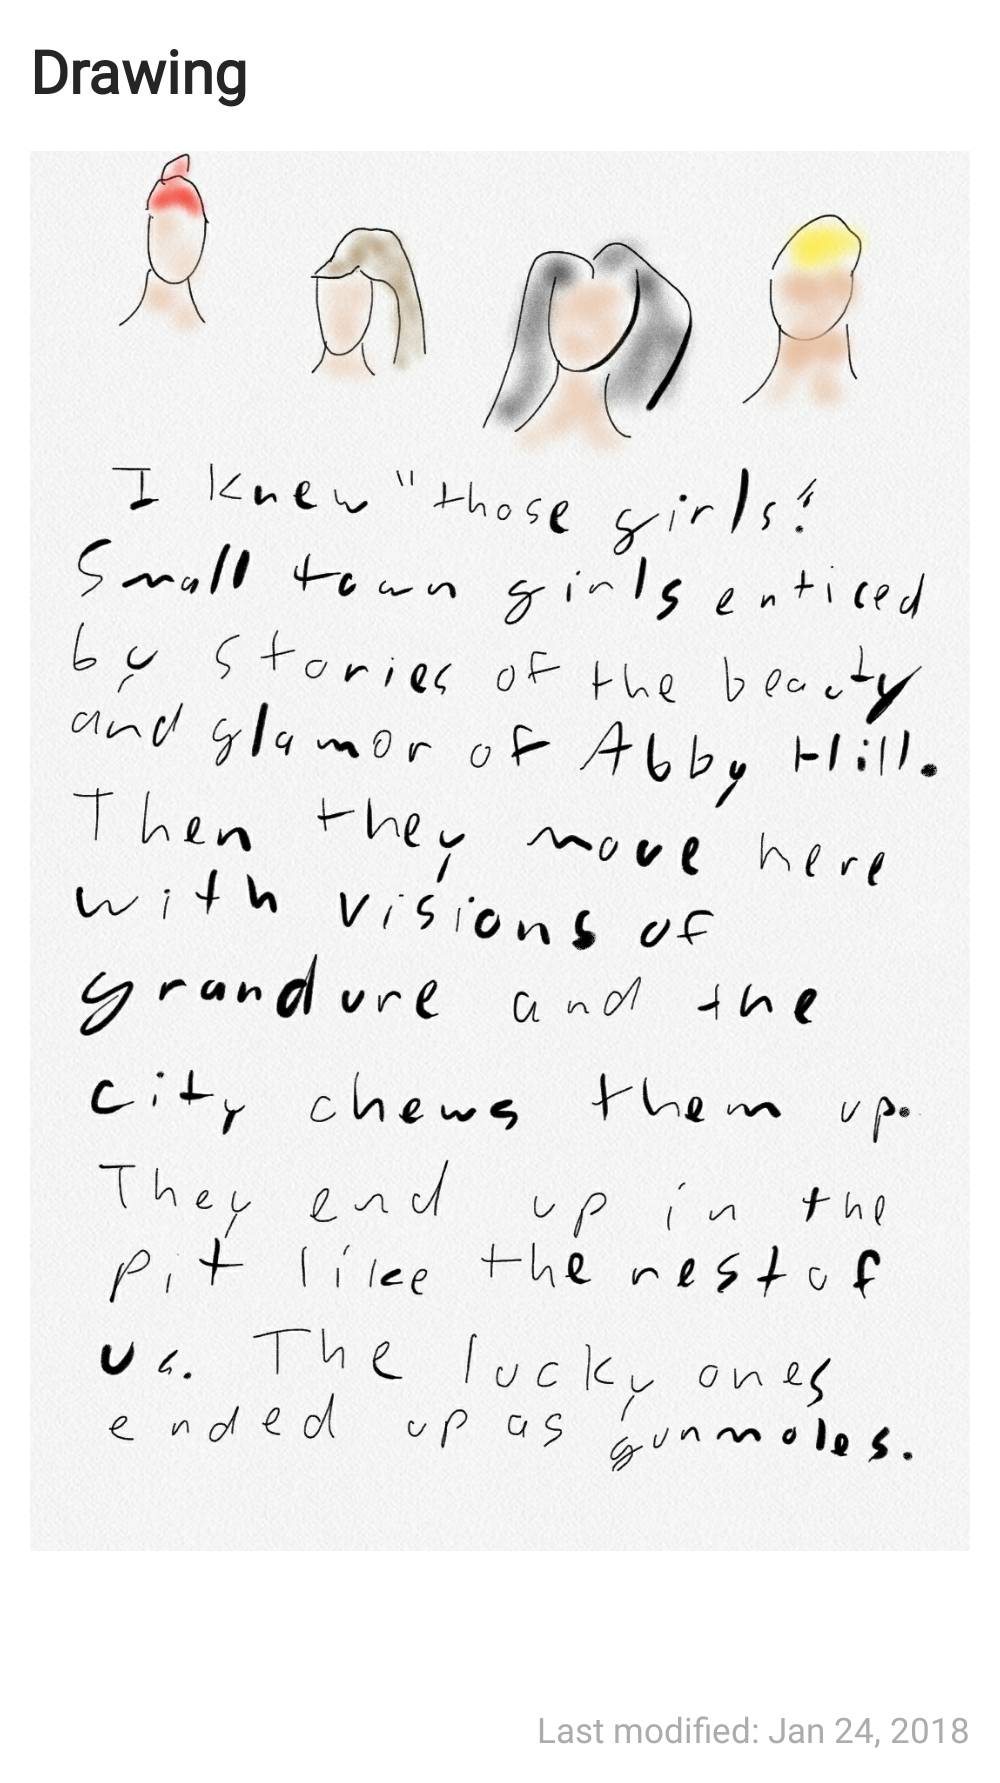 Drawing
I knew "those girls!
Small town girls enticed
by stories of the beauty
and glamor of Abby Hill.
Then they move here
with visions of
grandure and the
city chews them up.
They end up in the
pit like the rest of
us. The lucky ones
ended up as gunmoles.
Last modified: Jan 24, 2018